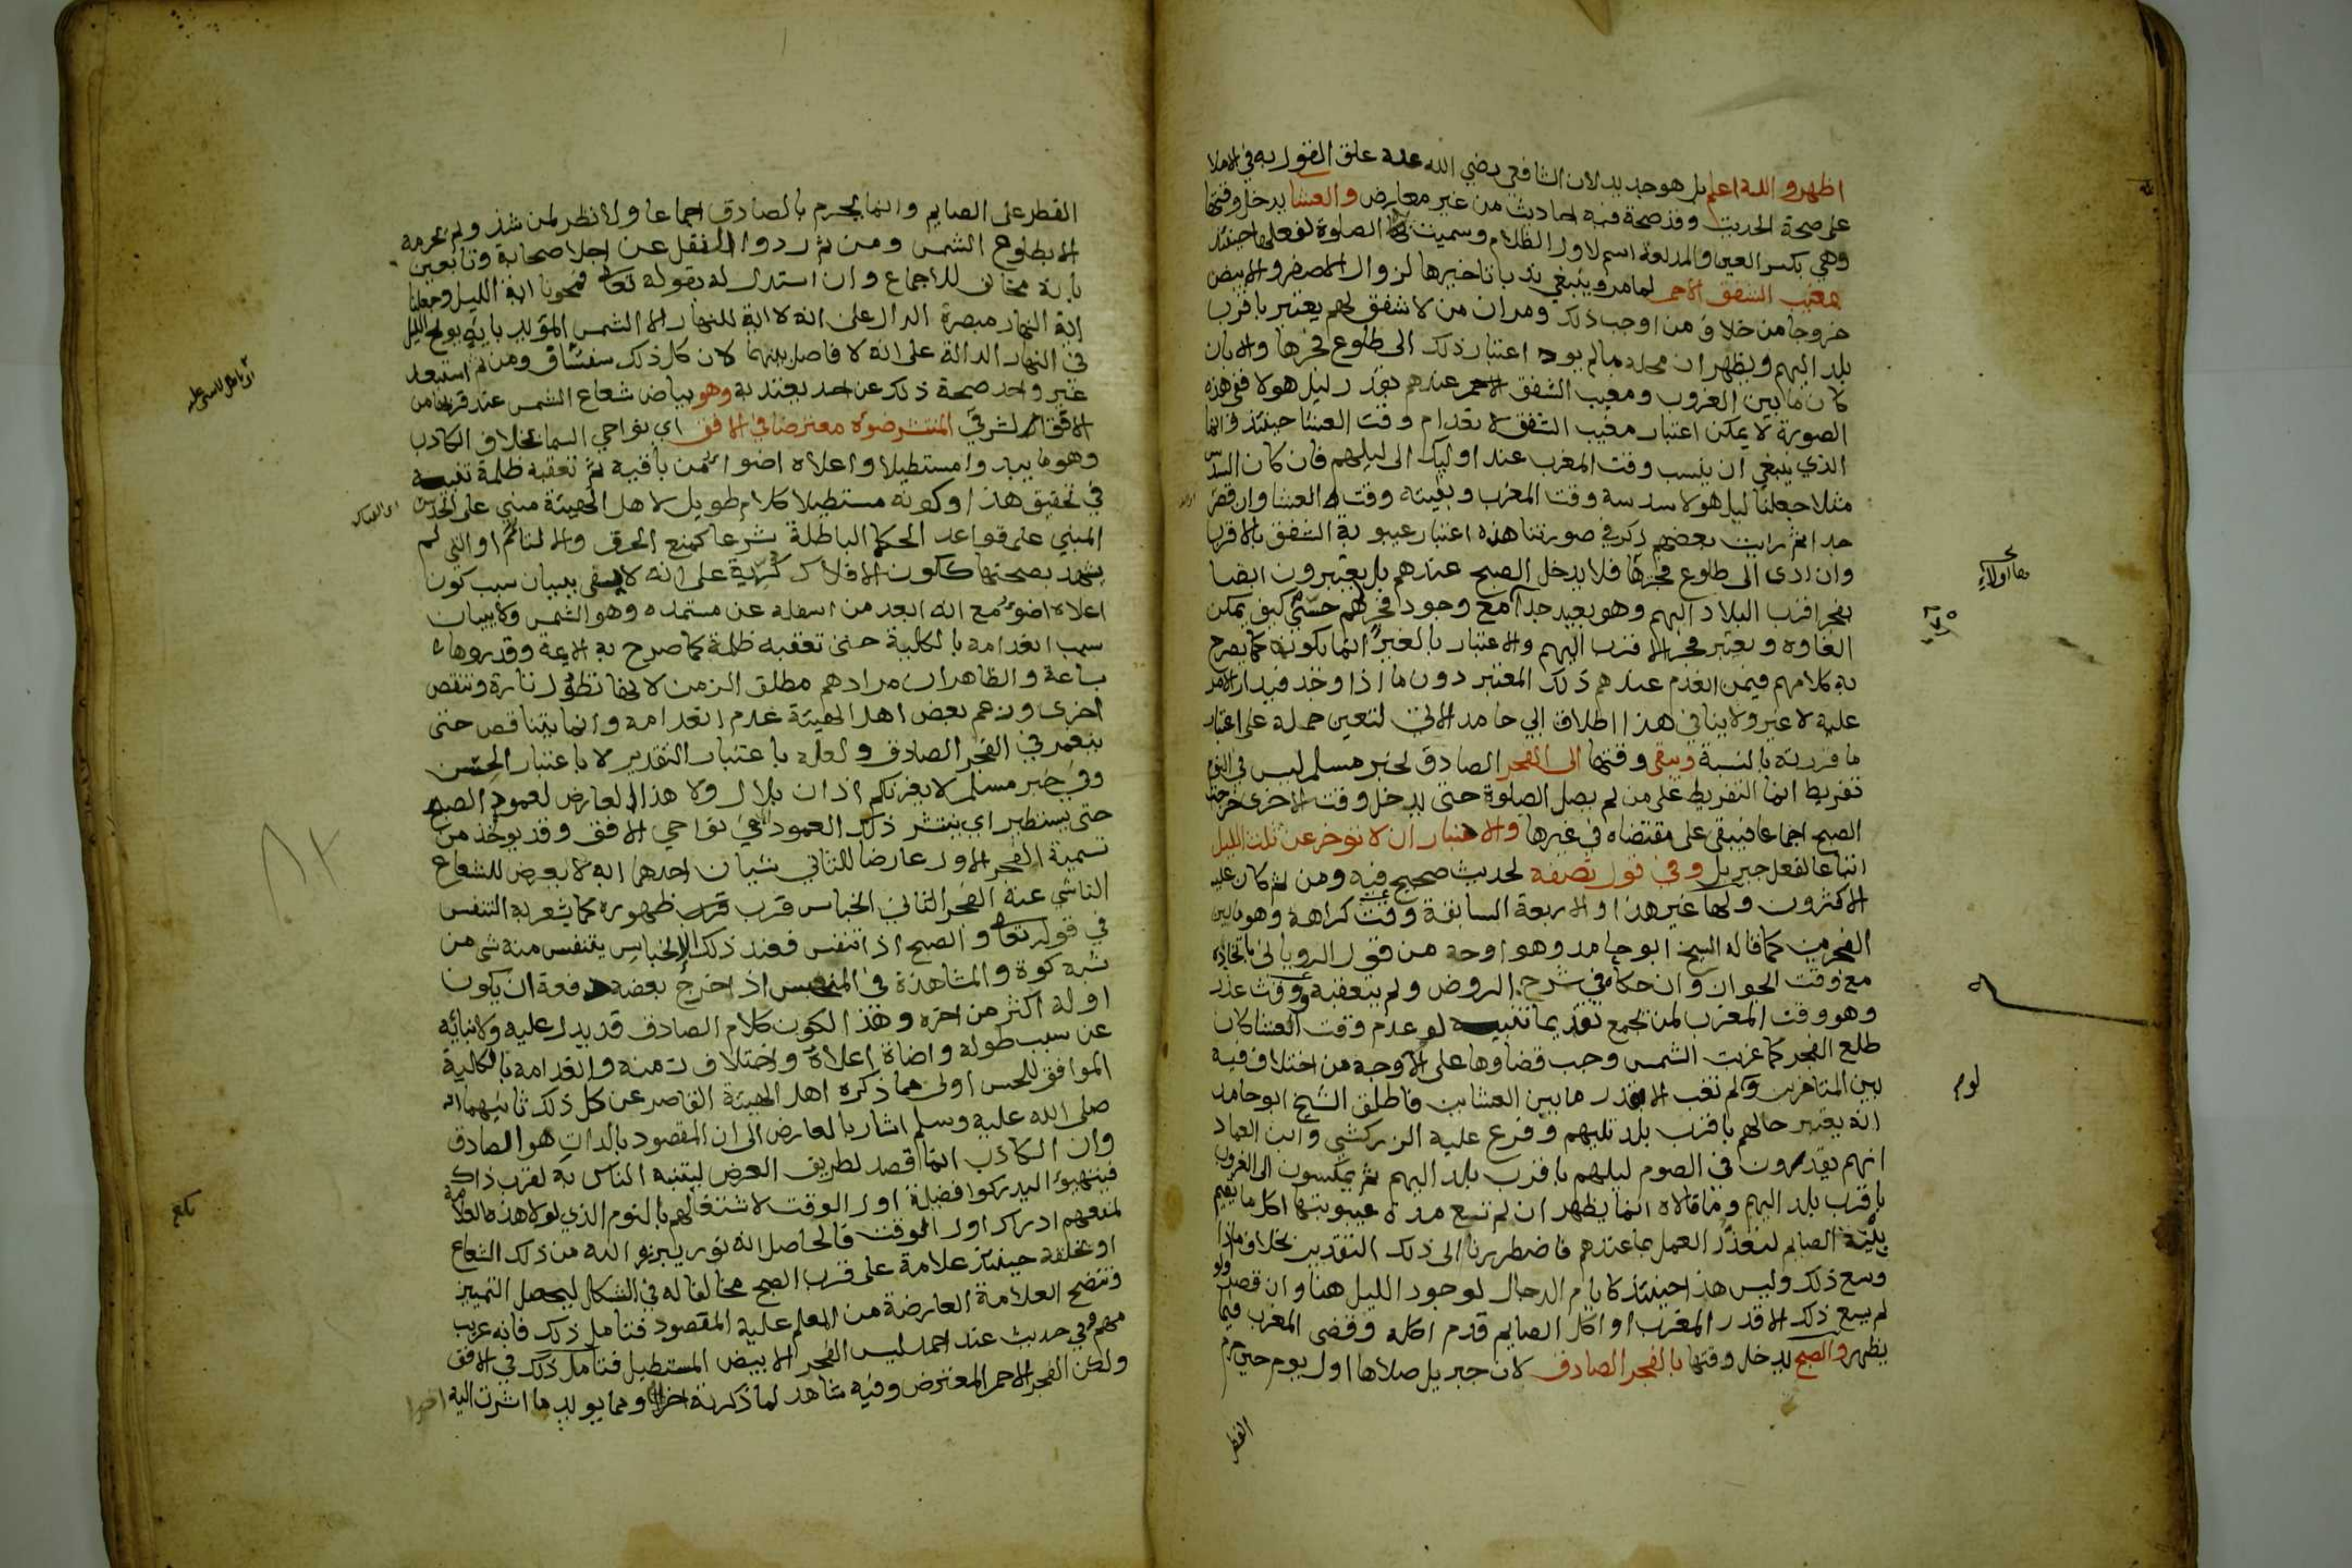 اظهر والله اعلم بل هو جديد لان الشافعي رضي الله عنه علق القول به في الاملا
على صحة الحديث وقد صحة فيه احاديث من غير معارض والعشا يدخل وقتها
وهي بكسر العين والمد لغة اسم لاول الظلام وسميت بها الصلوة لفعلها حينئذ
بمغيب الشفق الاحمر لما مر وينبغي ندبا تاخيرها لزوال الاصفر والابيض
خروجا من خلاف من اوجب ذلك ومر ان من لا شفق لهم يعتبر باقرب
بلد اليهم ويظهر ان محله ما لم يود اعتبار ذلك الى طلوع فجرها والا بان
كان ما بين الغروب ومغيب الشفق الاحمر عندهم بقدر ليل هولا ففي هذه
الصورة لا يمكن اعتبار مغيب الشفق لانعدام وقت العشا حينئذ وانما
الذي ينبغي ان ينسب وقت المغرب عند اوليك الى ليلهم فان كان السدس
مثلا جعلنا ليل هولا سدسه وقت المغرب وبقيته وقت العشا وان قصر
جدا ثم رايت بعضهم ذكر في صورتنا هذه اعتبار غيبوبة الشفق بالاقرب
وان ادى الى طلوع فجرها فلا يدخل الصبح عندهم بل يعتبرون ايضا
بفجر اقرب البلاد اليهم وهو بعيد جدا مع وجود فجر لهم حسي كيف يمكن
الغاوه ويعتبر فجر الاقرب اليهم والاعتبار بالغير انما يكون كما يصرح
به كلامهم فيمن انعدم عندهم ذلك المعتبر دون ما اذا وجد فيدار الامر
عليه لا غير ولا ينافي هذا اطلاق ابي حامد الاتي لتعين حمله على اعتبار
ما قررته بالنسبة ويبقى وقتها الى الفجر الصادق لخبر مسلم ليس في النوم
تفريط انما التفريط على من لم يصل الصلوة حتى يدخل وقت الاخرى خرجت
الصبح اجماعا فيبقى على مقتضاه في غيرها والاختيار ان لا توخر عن ثلث الليل
اتباعا لفعل جبريل وفي قول نصفه لحديث صحيح فيه ومن ثم كان عليه
الاكثرون ولها غير هذا والاربعة السابقة وقت كراهة وهو ما بين
الفجرين كما قاله الشيخ ابو حامد وهو اوجه من قول الروياني باتحاده
مع وقت الجواز وان حكاه في شرح الروض ولم يتعقبه ووقت عذر
وهو وقت المغرب لمن يجمع تقديما تنبيه لو عدم وقت العشا كان
طلع الفجر كما غربت الشمس وجب قضاوها على الاوجه من اختلاف فيه
بين المتاخرين ولو لم تغب الا بقدر ما بين العشاين فاطلق الشيخ ابو حامد
انه يعتبر حالهم باقرب بلد تليهم وفرع عليه الزركشي وابن العماد
انهم يقدرون في الصوم ليلهم باقرب بلد اليهم ثم يمسكون الى الغروب
باقرب بلد اليهم وما قالاه انما يظهر ان لم تسع مدة غيبوبتها اكل ما يقيم
بنية الصايم لتعذر العمل بما عندهم فاضطررنا الى ذلك التقدير بخلاف ما اذا
وسع ذلك وليس هذا حينئذ كايام الدجال لوجود الليل هنا وان قصر ولو
لم يسع ذلك الا قدر المغرب او اكل الصايم قدم اكله وقضى المغرب فيما
يظهر والصبح يدخل وقتها بالفجر الصادق لان جبريل صلاها اول يوم حين حرم
الفطر
الفطر على الصايم وانما يحرم بالصادق اجماعا ولا نظر لمن شذ ولم يحرمه
الا بطلوع الشمس ومن ثم ردوا النقل عن اجلا صحابة وتابعين
بانه مخالف للاجماع وان استدل له بقوله تعالى فمحونا اية الليل وجعلنا
اية النهار مبصرة الدال على انه لا اية للنهار الا الشمس المؤيد باية يولج الليل
في النهار الدالة على انه لا فاصل بينهما لان كل ذلك سفساف ومن ثم استبعد
غير واحد صحة ذلك عن احد يعتد به وهو بياض شعاع الشمس عند قربها من
الافق الشرقي المنتشر ضوؤه معترضا في الافق اي نواحي السما بخلاف الكاذب
وهو ما يبدوا مستطيلا واعلاه اضوا من باقيه ثم تعقبه ظلمة تنبيه
في تحقيق هذا وكونه مستطيلا كلام طويل لاهل الهيئة مبني على الحدس
المبني على قواعد الحكما الباطلة شرعا كمنع الخرق والالتيام او التي لم
يشهد بصحتها ككون الافلاك كرية على انه لا يفي ببيان سبب كون
اعلاه اضوء مع انه ابعد من اسفله عن مستمده وهو الشمس ولا ببيان
سبب انعدامه بالكلية حتى تعقبه ظلمة كما صرح به الايمة وقدروها
بساعة والظاهر ان مرادهم مطلق الزمن لانها تطول تارة وتنقص
اخرى وزعم بعض اهل الهيئة عدم انعدامه وانما يتناقص حتى
ينغمر في الفجر الصادق ولعله باعتبار التقدير لا باعتبار الحس
وفي خبر مسلم لا يغرنكم اذان بلال ولا هذا العارض لعمود الصبح
حتى يستطير اي ينتشر ذلك العمود في نواحي الافق وقد يوخذ من
تسمية الفجر الاول عارضا للثاني شيان احدهما انه لا يعرض للشعاع
الناشي عنه الفجر الثاني انحباس قرب ظهوره كما يشعر به التنفس
في قوله تعالى والصبح اذا تنفس فعند ذلك الانحباس يتنفس منه شى من
شبه كوة والمشاهدة في المنحبس اذا خرج بعضه دفعة ان يكون
اوله اكثر من اخره وهذا لكون كلام الصادق قد يدل عليه ولانبائه
عن سبب طوله واضاة اعلاه واختلاف زمنه وانعدامه بالكلية
الموافق للحس اولى مما ذكره اهل الهيئة القاصر عن كل ذلك ثانيهما انه
صلى الله عليه وسلم اشار بالعارض الى ان المقصود بالذات هو الصادق
وان الكاذب انما قصد بطريق العرض ليتنبه الناس به لقرب ذاك
فيتهيؤا ليدركوا فضيلة اول الوقت لاشتغالهم بالنوم الذي لولا هذه العلامة
لمنعهم ادراك اول الوقت فالحاصل انه نور يبرزه الله من ذلك الشعاع
او يخلقه حينئذ علامة على قرب الصبح مخالفا له في الشكل ليحصل التمييز
وتتضح العلامة العارضة من المعلم عليه المقصود فتامل ذلك فانه غريب
مهم وفي حديث عند احمد ليس الفجر الابيض المستطيل في الافق
ولكن الفجر الاحمر المعترض وفيه شاهد لما ذكرته اخرا ومما يويد ما اشرت اليه